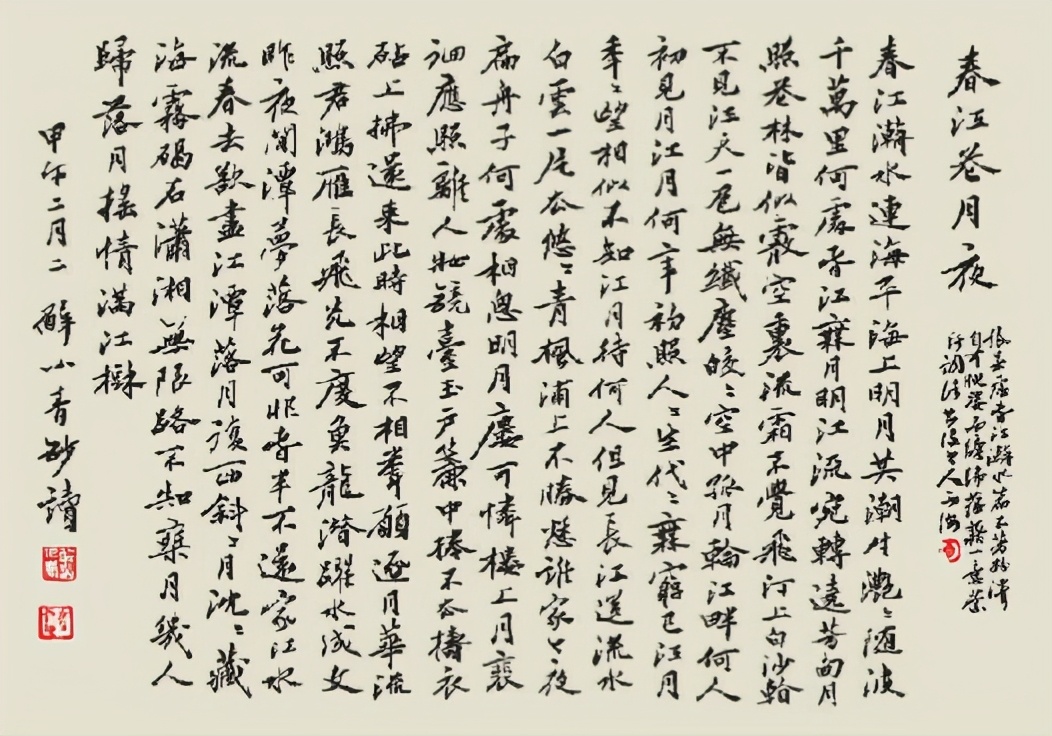 春江花月夜
張若虛春江潮水篇不著粉澤
自有腴姿而纏綿蘊藉一意縈
紆調法出没令人不測
春江潮水連海平海上明月共潮生灧〻随波
千萬里何處春江無月明江流宛轉遶芳甸月
照花林皆似霰空裏流霜不覺飛汀上白沙看
不見江天一色無纖塵皎〻空中孤月輪江畔何人
初見月江月何年初照人〻生代〻無窮已江月
年〻望相似不知江月待何人但見長江送流水
白雲一片去悠〻青楓浦上不勝愁誰家今夜
扁舟子何處相思明月廔可憐楼上月裵
徊應照離人妝鏡臺玉户簾中捲不去擣衣
砧上拂還来此時相望不相聞願逐月華流
照君鴻雁長飛光不度魚龍潛躍水成文
昨夜閒潭夢落花可憐春半不還家江水
流春去欲盡江潭落月復西斜〻月沈〻藏
海霧碣石瀟湘無限路不知乘月幾人
歸落月摇情滿江樹
甲午二月二 解小青抄讀